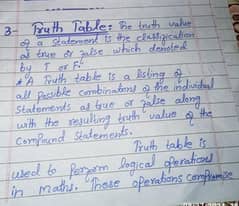 3- Truth Table:- The truth value
of a statement is the classification
as true or false which denoted
by T or F.
* A Truth table is a listing of
all possible combinations of the individual
Statements as true or false along
with the resulting truth value of the
compound statements.
Truth table is
used to perform logical operations
in maths. These operations comprise